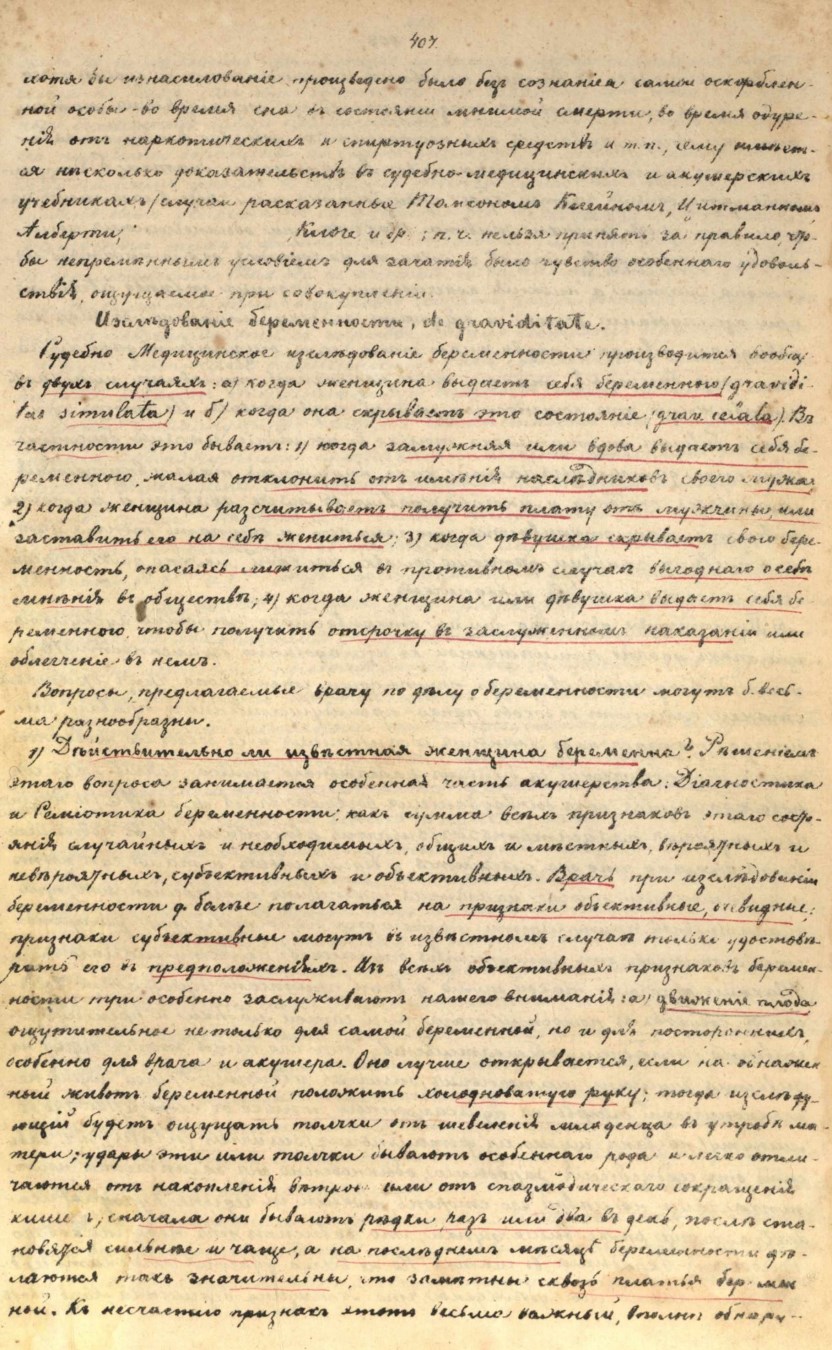 407.
хотя бы изнасилованіе произведено было безъ сознанія самой оскорблен-
ной особы - во время сна въ состояніи мнимой смерти, во время одуре-
нія отъ наркотическихъ и спиртуозныхъ средствъ и т.п., сему имѣет-
ся нѣсколько доказательствъ въ судебно-медицинскихъ и акушерскихъ
учебникахъ (случаи расказанные Клейномъ, Цитманномъ
Алберти, Клюге и др.; п. ч. нельзя принять за правило, что-
бы непремѣннымъ условіемъ для зачатія было чувство особеннаго удоволь-
ствія, ощущаемое при совокупленіи.
Изслѣдованіе беременности, de graviditate.
Судебно Медицинское изслѣдованіе беременности производится вообще
въ двухъ случаяхъ: а) когда женщина выдаетъ себя беременною (gravidi-
tas simulata) и б) когда она скрываетъ это состояніе (grav. celata). Въ
частности это бываетъ: 1) когда замужняя или вдова выдаетъ себя бе-
ременною, желая отклонить отъ имѣнія наслѣдниковъ своего мужа;
2) когда женщина разсчитываетъ получить плату отъ мужчины, или
заставить его на себѣ жениться; 3) когда дѣвушка скрываетъ свою бере-
менность, опасаясь лишиться въ противномъ случаѣ выгоднаго о себѣ
мнѣнія въ обществѣ; 4) когда женщина или дѣвушка выдаетъ себя бе-
ременною, чтобы получить отсрочку въ заслуженномъ наказаніи или
облегченіе въ немъ.
Вопросы, предлагаемые врачу по дѣлу о беременности могутъ б. весь-
ма разнообразны.
1) Дѣйствительно ли извѣстная женщина беременна? Рѣшеніемъ
этаго вопроса занимается особенная часть акушерства: Діагностика
и Семіотика беременности; какъ сумма всѣхъ признаковъ этаго состо-
янія случайныхъ и необходимыхъ, общихъ и мѣстныхъ, вѣроятныхъ и
невѣроятныхъ, субъективныхъ и объективныхъ. Врачъ при изслѣдованіи
беременности д. болѣе полагаться на признаки объективные, очевидные;
признаки субъективные могутъ въ извѣстномъ случаѣ только удостовѣ-
рить его въ предположеніяхъ. Изъ всѣхъ объективныхъ признаковъ беремен-
ности три особенно заслуживаютъ нашего вниманія: а) движеніе плода
ощутительное не только для самой беременной, но и для постороннихъ,
особенно для врача и акушера. Оно лучше открывается, если на обнажен-
ный животъ беременной положить холодноватую руку; тогда изслѣду-
ющій будетъ ощущать толчки отъ шевеленія младенца въ утробѣ ма-
тери; удары эти или толчки бываютъ особеннаго рода и легко отли-
чаются отъ накопленія вѣтровъ или отъ спазмодическаго сокращенія
кишекъ, сначала они бываютъ рѣдки, разъ или два въ день, послѣ ста-
новятся сильнѣе и чаще, а на послѣднемъ мѣсяцѣ беременности дѣ-
лаются такъ значительны, что замѣтны сквозь платья беремен-
ной. Къ несчастію признакъ этотъ весьма важный, вполнѣ обнару-